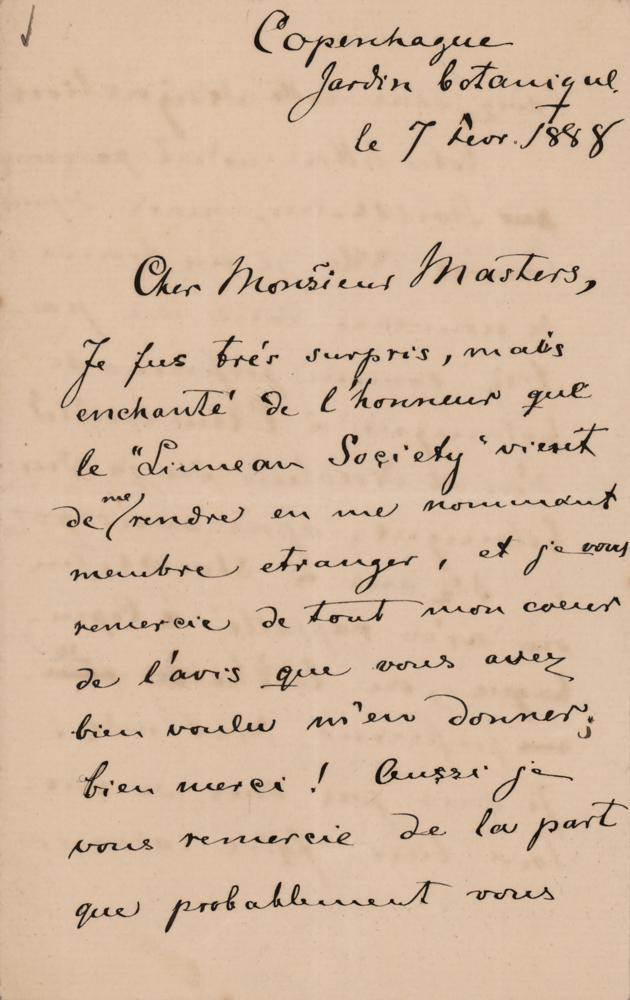 Copenhague
Jardin botanique.
le 7 Fevr. 1888
Cher Monsieur Masters,
Je fus trés surpris, mais
enchanté de l'honneur que
le "Linnean Society" vient
de me rendre en me nommant
membre etranger, et je vous
remercie de tout mon coeur
de l'avis que vous avez
bien voulu m'en donner;
bien merci! Aussi je
vous remercie de la part
que probablement vous